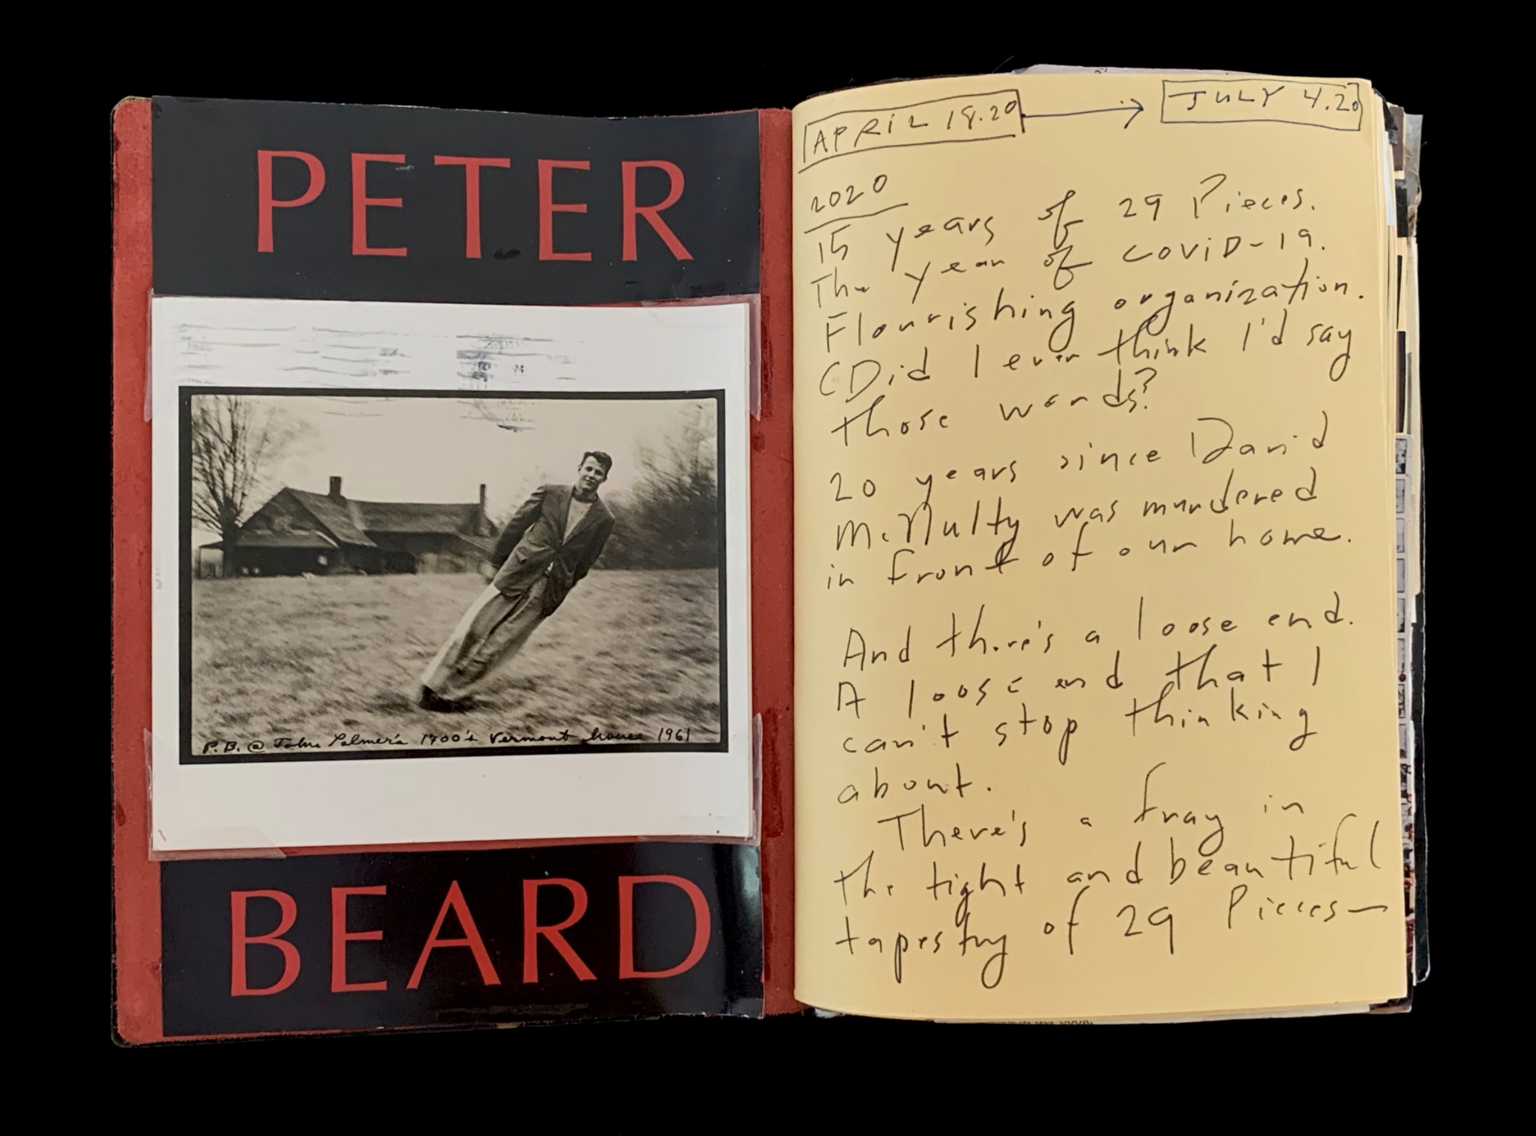 PETER
P.B. @ John Palmer's 1700's Vermont house 1961
BEARD
APRIL 18.20 → JULY 4.20
2020
15 years of 29 Pieces.
The year of COVID-19.
Flourishing organization.
(Did I ever think I'd say
those words?
20 years since David
McNulty was murdered
in front of our home.
And there's a loose end.
A loose end that I
can't stop thinking
about.
There's a fray in
the tight and beautiful
tapestry of 29 Pieces—